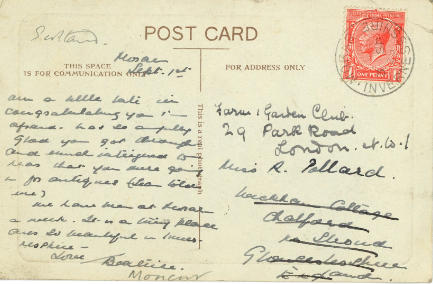 Scotland.
POST CARD
THIS SPACE
IS FOR COMMUNICATION ONLY
FOR ADDRESS ONLY
ONE PENNY
INVERNESS
Sept. 1st
am a little late in
congratulating you I'm
afraid. was so
glad you got through
and much intrigued to
hear that you were going
in for antiques
me)
We have been at
a week. It is a place
and so beautiful in
Love
Beatrice.
This is a real photograph
Farm & Garden Club
29 Park Road
London. N.W.1
Miss R. Pollard.
Cottage
Chalford
Nr Stroud
Gloucestershire
England.